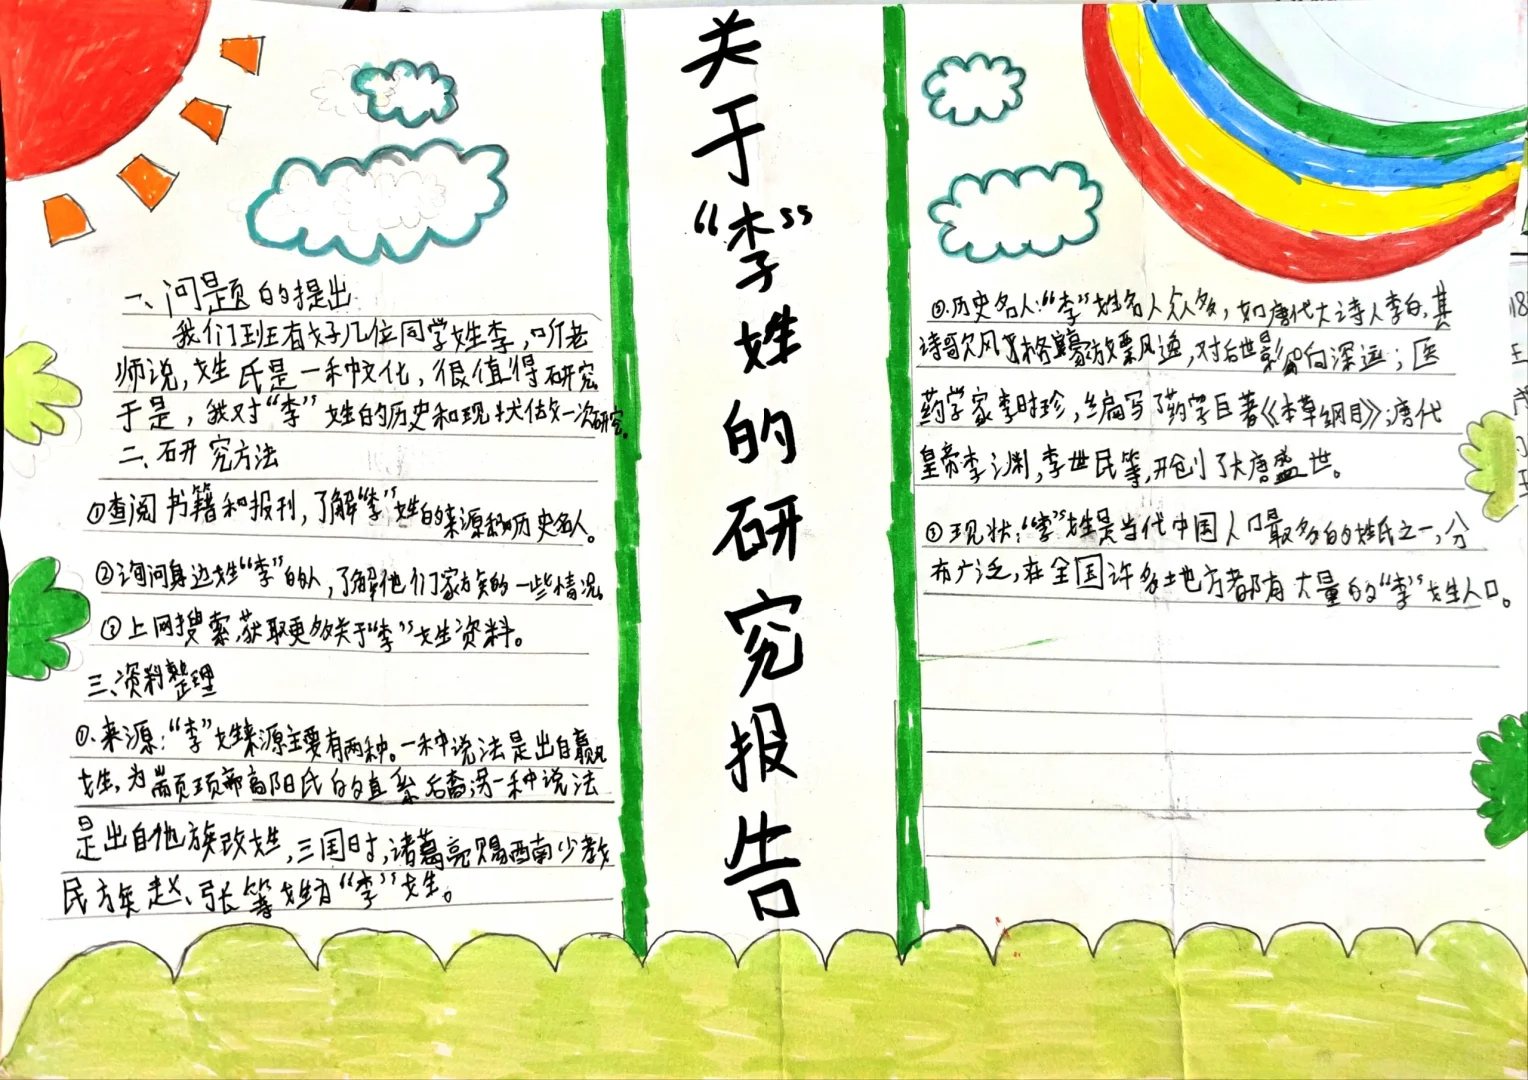 关于“李”姓的研究报告
一、问题的提出
我们班有好几位同学姓李,听老
师说,姓氏是一种文化,很值得研究
于是,我对“李”姓的历史和现状做一次研究。
二、研究方法
①查阅书籍和报刊,了解“李”姓的来源和历史名人。
②询问身边姓“李”的人,了解他们家族的一些情况。
③上网搜索,获取更多关于“李”姓资料。
三、资料整理
①.来源:“李”姓来源主要有两种。一种说法是出自嬴
姓,为颛顼帝高阳氏的直系后裔;另一种说法
是出自他族改姓,三国时,诸葛亮赐西南少数
民族赵、张等姓为“李”姓。
②.历史名人:“李”姓名人众多,如唐代大诗人李白,其
诗歌风格豪放飘逸,对后世影响深远;医
药学家李时珍,编写了药学巨著《本草纲目》;唐代
皇帝李渊,李世民等,开创了大唐盛世。
③现状:“李”姓是当代中国人口最多的姓氏之一,分
布广泛,在全国许多地方都有大量的“李”姓人口。